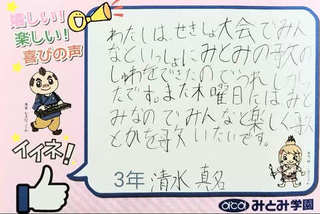 嬉しい!
楽しい!
喜びの声
わたしは、せきしょ大会でみん
なといっしょにみとみの歌の
しゅわをできたのでうれしかっ
たです。また木曜日にはみと
みなのでみんなと楽しく歌
とかを歌いたいです。
イイネ!
3年 清水 真名
みとみ学園